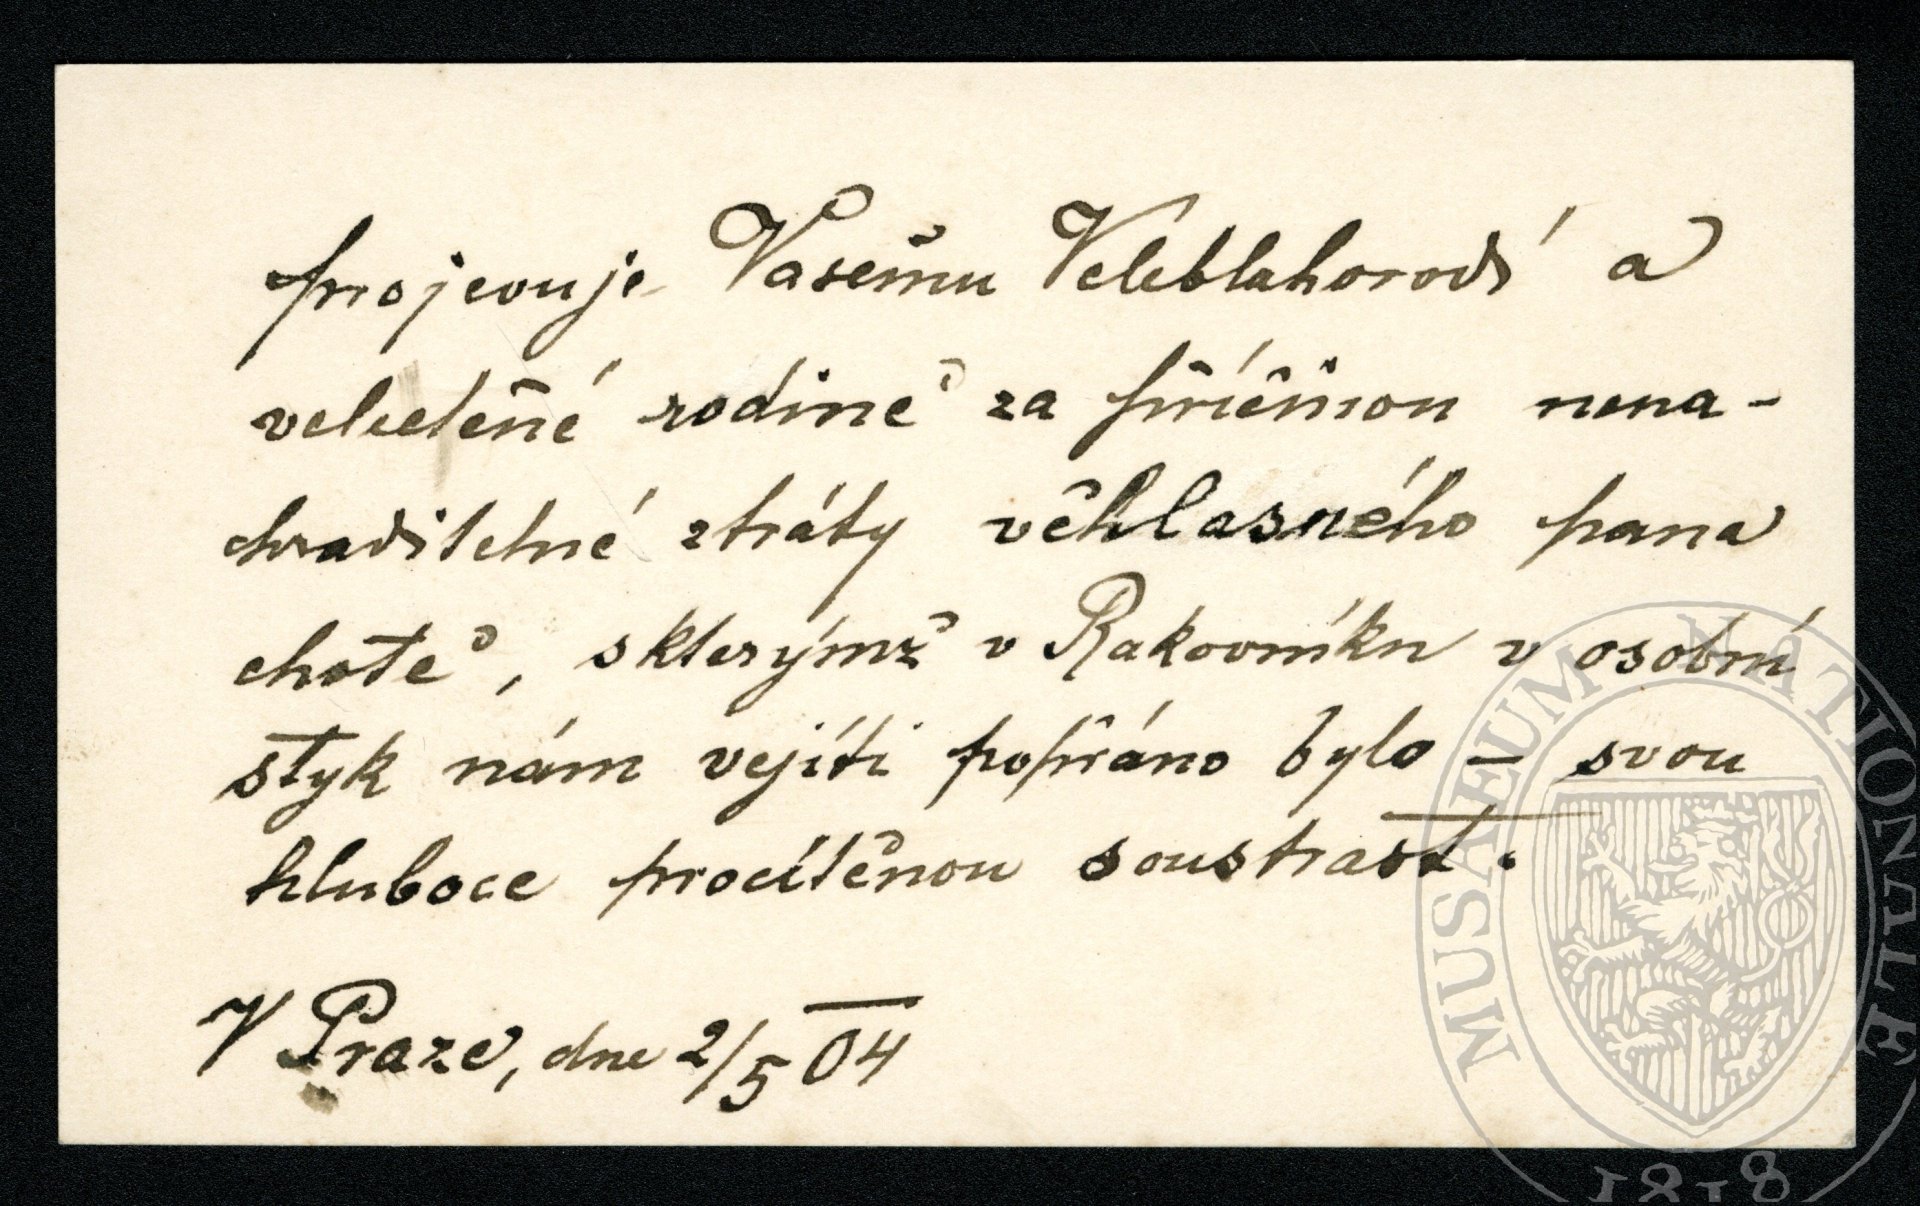 projevuje Vašemu Veleblahorodí a
velectěné rodině za příčinou nena-
hraditelné ztráty věhlasného pana
chotě, s kterýmž v Rakovníku v osobní
styk nám vejíti popřáno bylo – svou
hluboce procítěnou soustrast.
V Praze, dne 2/5 04
MUSAEUM NATIONALE
1818